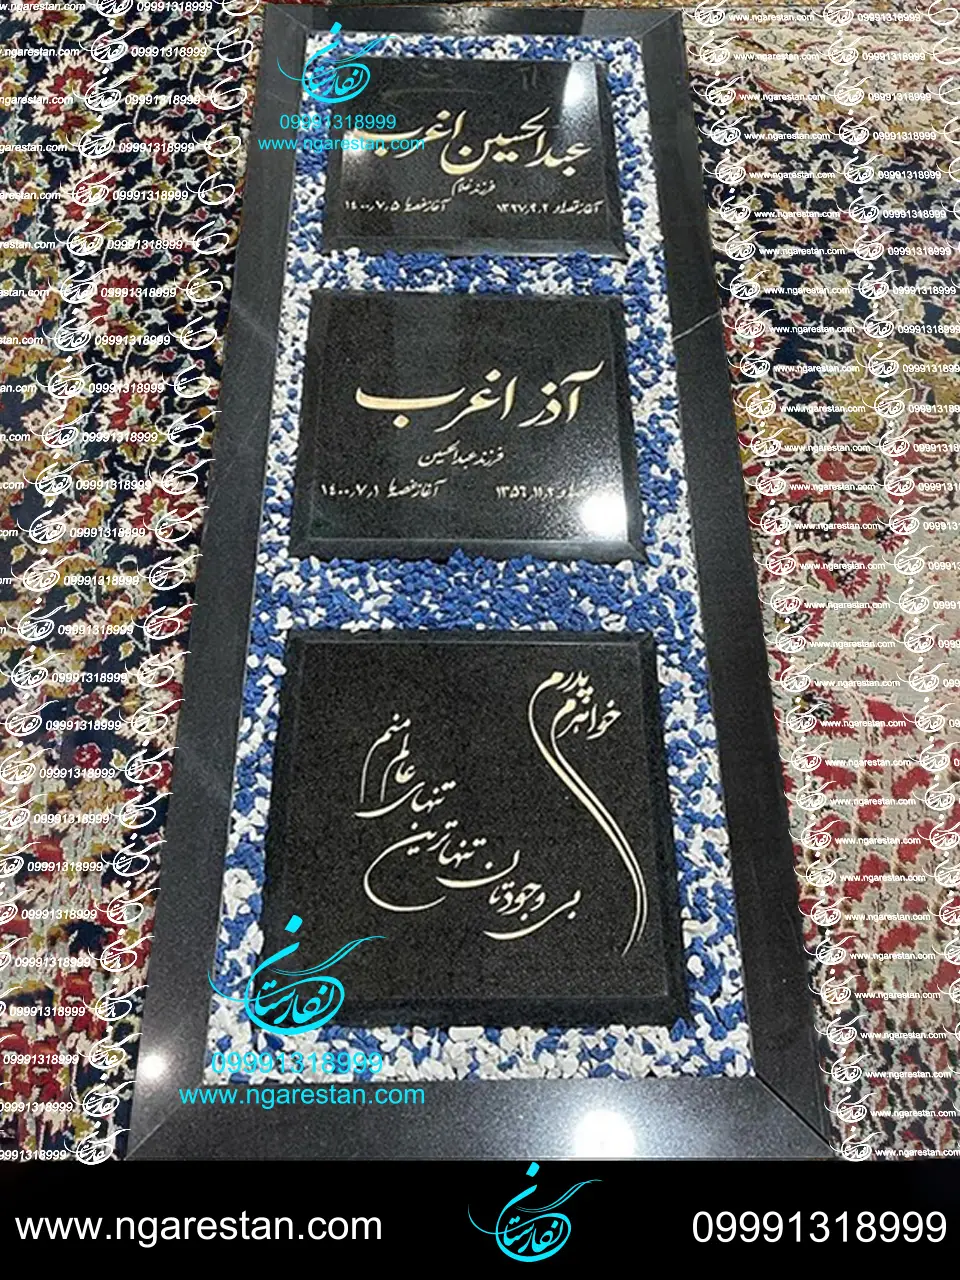 نگارستان
09991318999
www.ngarestan.com
عبدالحسین اغرب
فرزند غلام
آغاز قصه ۱۳۲۷٫۹٫۲ آغاز غصه ۱۴۰۰٫۷٫۵
آذر اغرب
فرزند عبدالحسین
۱۳۵۶٫۱۱٫۲ آغاز غصه ۱۴۰۰٫۷٫۱
پدرم
خواهرم
بی وجودتان تنهاترین
تنهای عالم منم
نگارستان
09991318999
www.ngarestan.com
www.ngarestan.com
نگارستان
09991318999